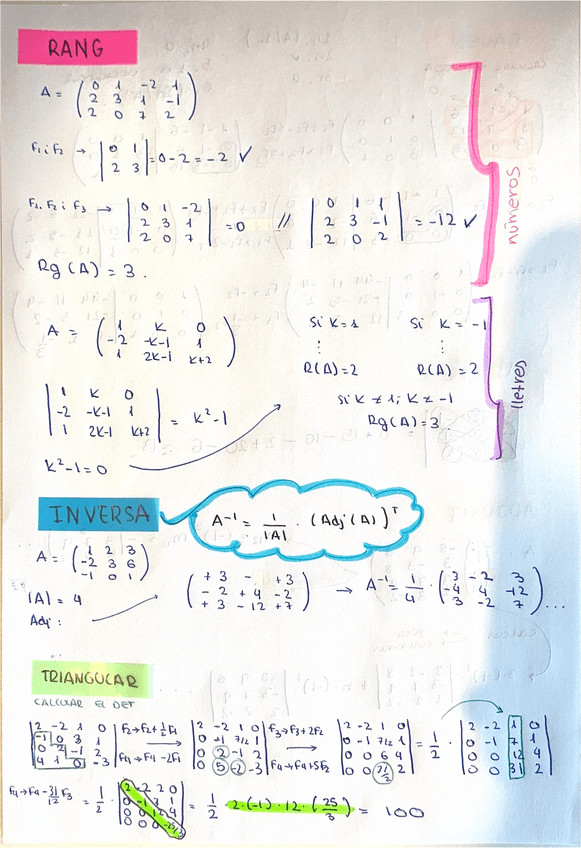 RANG
A = ( 0 1 -2 1
2 3 1 -1
2 0 7 2 )
F1 i F2 → | 0 1
2 3 | = 0 - 2 = -2 ✓
F1, F2 i F3 → | 0 1 -2
2 3 1
2 0 7 | = 0 // | 0 1 1
2 3 -1
2 0 2 | = -12 ✓
Rg (A) = 3.
números
A = ( 1 K 0
-2 -K-1 1
1 2K-1 K+2 )
| 1 K 0
-2 -K-1 1
1 2K-1 K+2 | = K² - 1
K² - 1 = 0
Si K = 1 Si K = -1
⋮ ⋮
R(A) = 2 R(A) = 2
Si K ≠ 1; K ≠ -1
Rg(A) = 3.
lletres
INVERSA
A⁻¹ = 1/|A| · (Adj (A))ᵀ
A = ( 1 2 3
-2 3 6
-1 0 1 )
|A| = 4
Adj :
( + 3 - +3
- 2 + 4 - 2
+ 3 - 12 + 7 ) → A⁻¹ = 1/4 · ( 3 - 2 3
-4 4 -12
3 -2 7 ) ...
TRIANGULAR
CALCULAR EL DET
| 2 -2 1 0
-1 0 3 1
0 2 -1 2
4 1 0 -3 | F2→F2+½F1
F4→F4-2F1
| 2 -2 1 0
0 -1 7/2 1
0 2 -1 2
0 5 -2 -3 | F3→F3+2F2
F4→F4+5F2
| 2 -2 1 0
0 -1 7/2 1
0 0 6 4
0 0 31/2 2 | = 1/2 · | 2 -2 1 0
0 -1 7 1
0 0 12 4
0 0 31 2 |
F4→F4-31/12 F3 = 1/2 · | 2 -2 2 0
0 -1 7 1
0 0 12 4
0 0 0 -25/3 | = 1/2 · 2·(-1)·12·(25/3) = 100